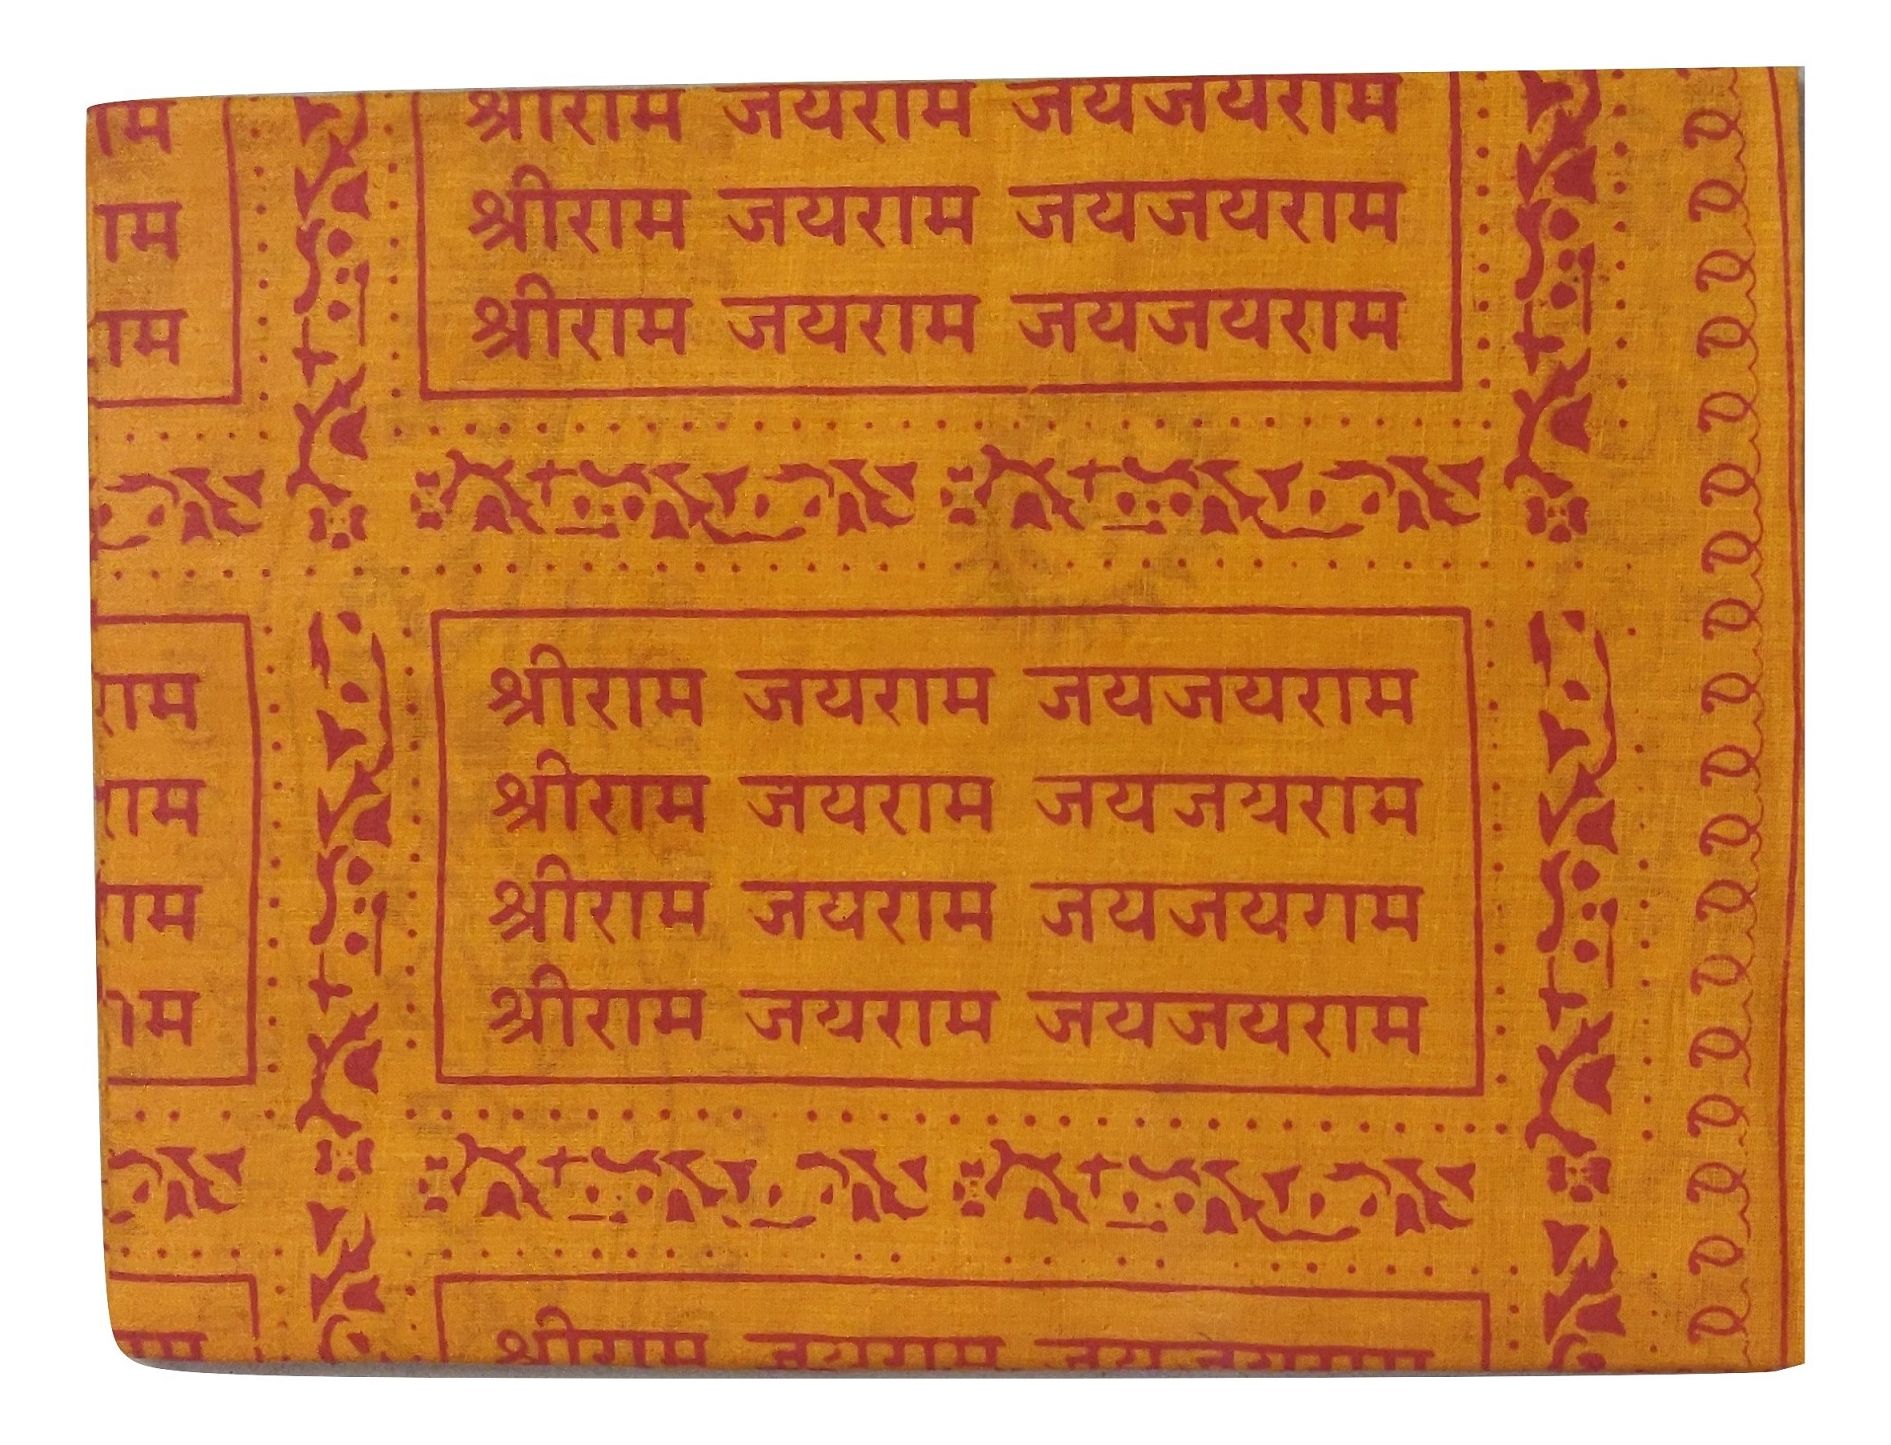 श्रीराम जयराम जयजयराम
श्रीराम जयराम जयजयराम
श्रीराम जयराम जयजयराम
श्रीराम जयराम जयजयराम
श्रीराम जयराम जयजयराम
श्रीराम जयराम जयजयराम
श्रीराम जयराम जयजयराम
श्रीराम जयराम जयजयराम